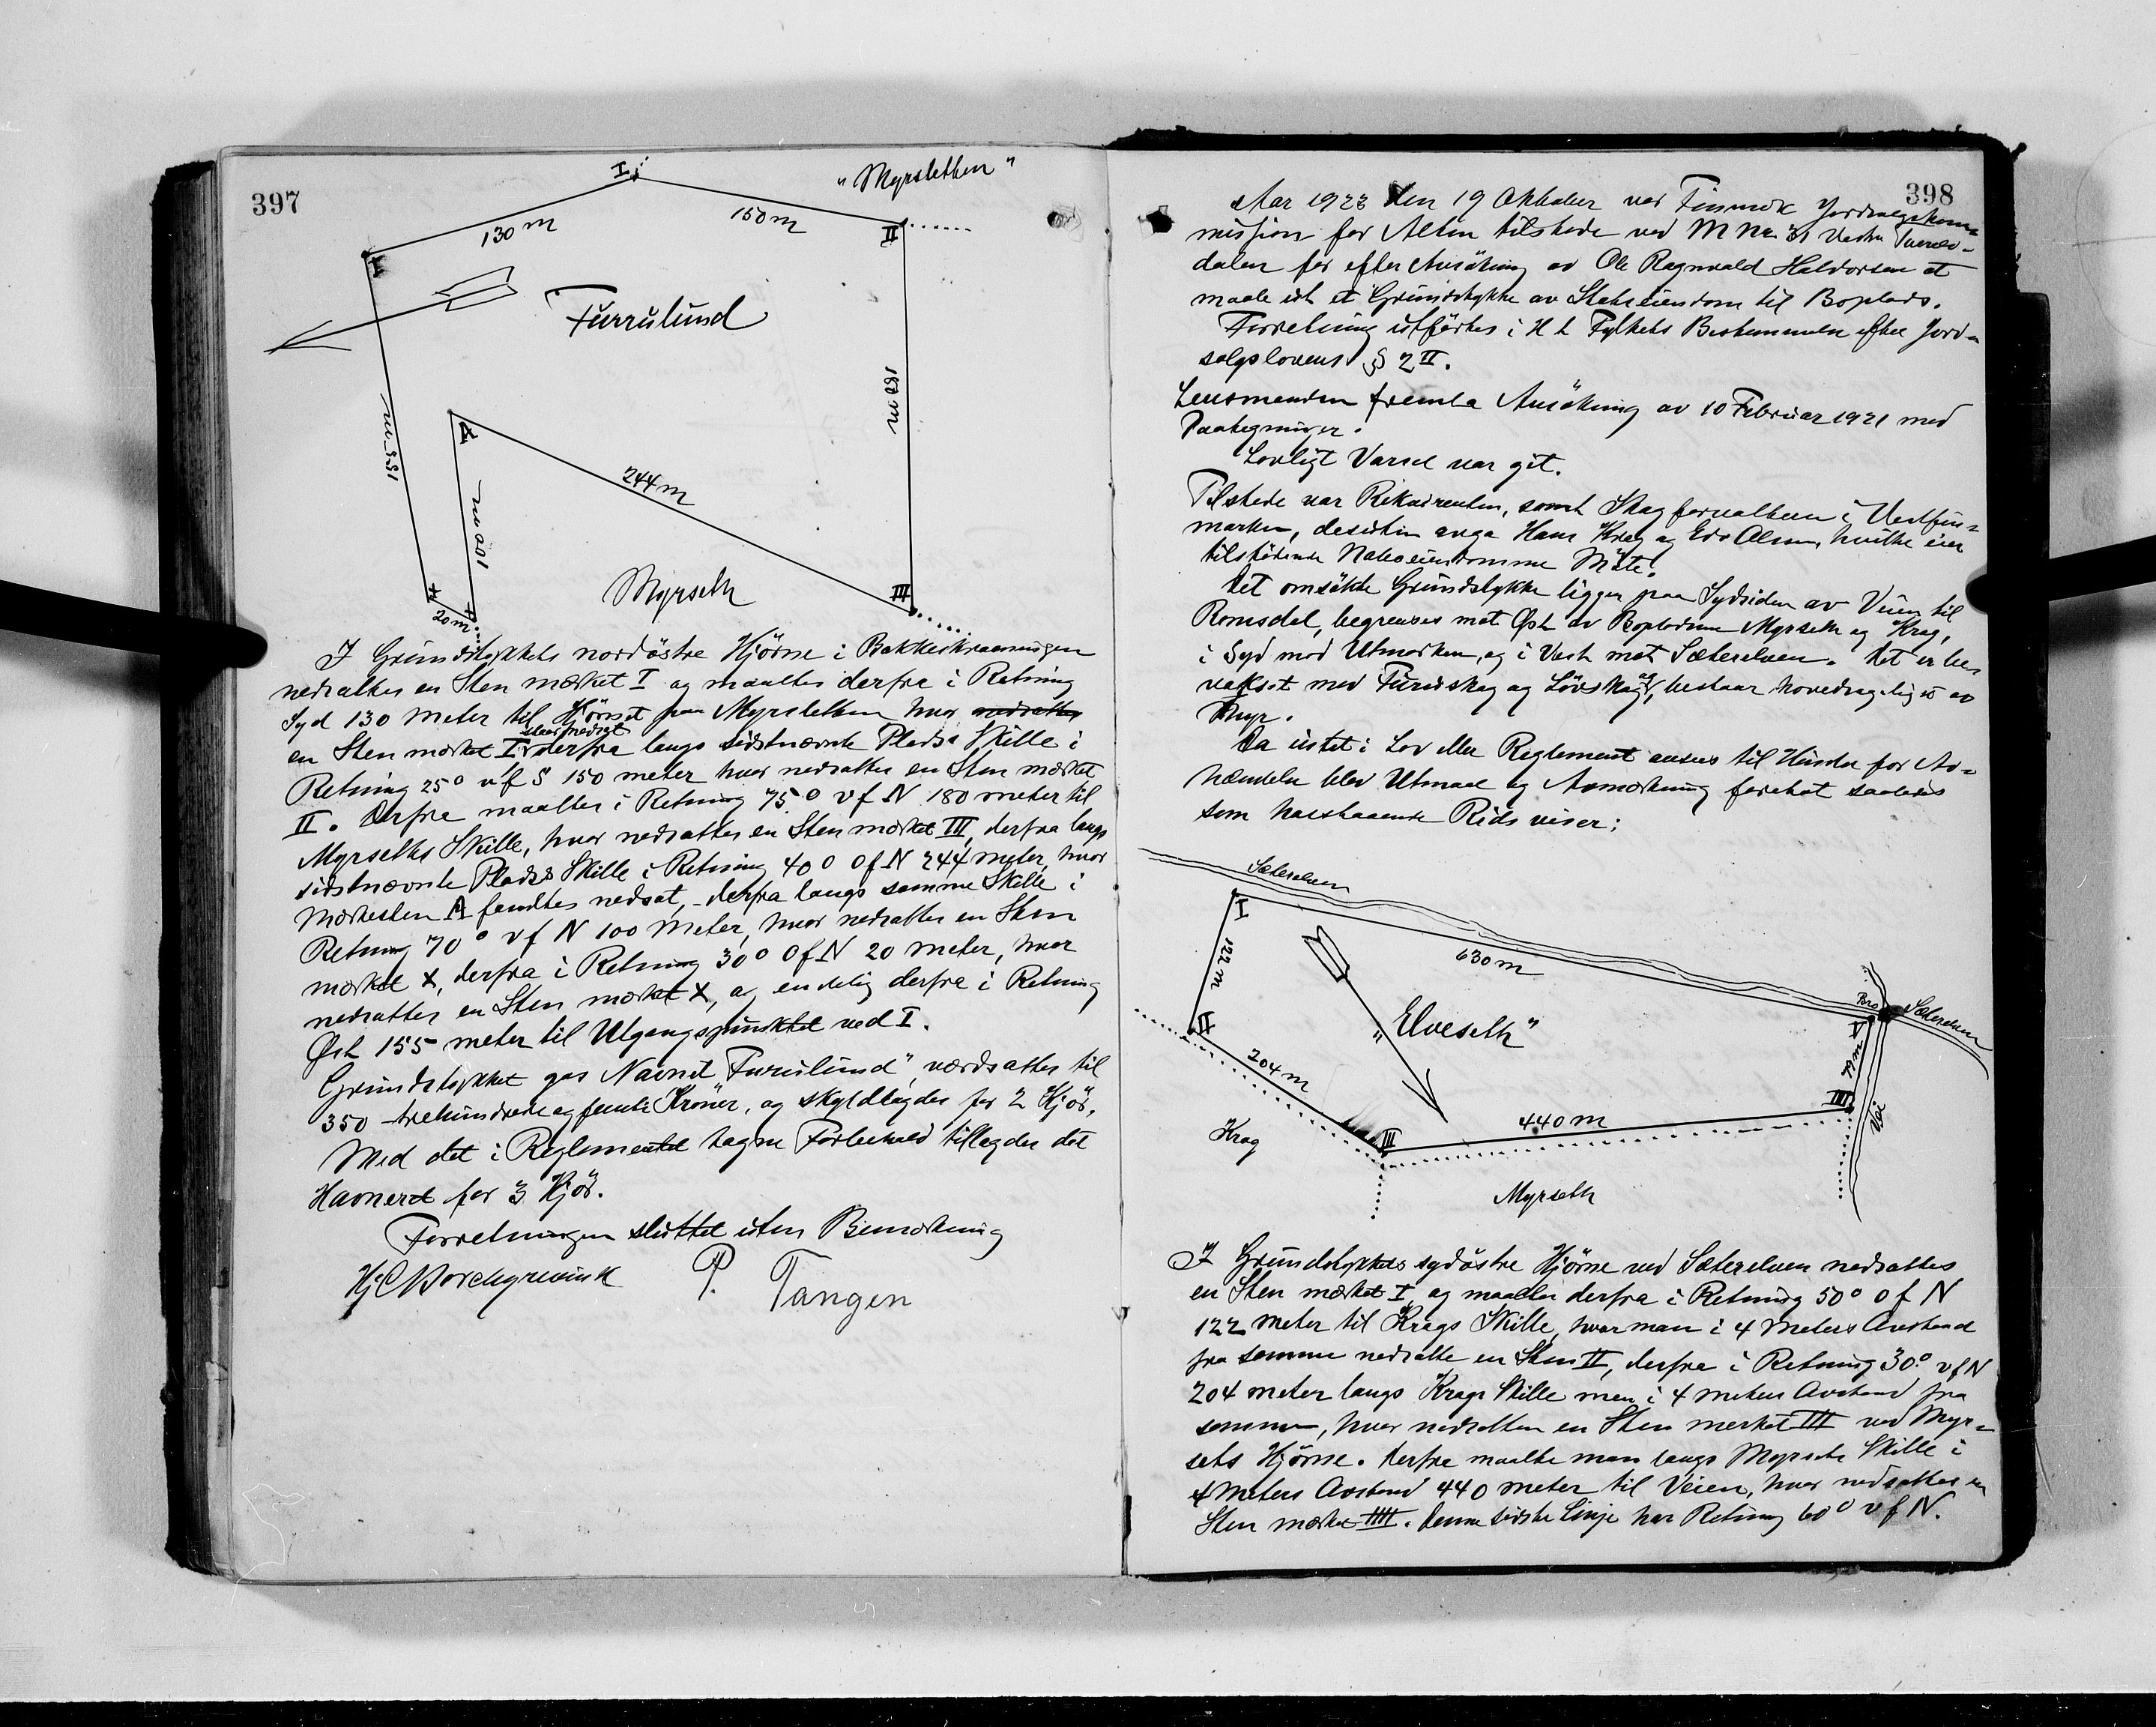 397
I
"Myrsletten"
130 m
150 m
II
I
Furrulund
180 m
155 m
A
100 m
244 m
Myrseth
III
x
x
20 m
I Grundstykkets nordöstre Hjörne i Bakkeskraaningen
nedsattes en Sten mærket I og maaltes derfra i Retning
Syd 130 meter til Hjörnet paa Myrsletten hvor nedsattes
en Sten mærket I derfra langs sidstnævnte Plads's Skille i
Retning 25° v f S 150 meter hvor nedsattes en Sten mærket
II. Derfra maaltes i Retning 75° v f N 180 meter til
Myrseths Skille, hvor nedsattes en Sten mærket III, derfra langs
sidstnævnte Plads's Skille i Retning 40° O f N 244 meter, hvor
Merkesten A fandtes nedsat, - derfra langs samme Skille i
Retning 70° v f N 100 meter, hvor nedsattes en Sten
mærket x, derfra i Retning 30° O f N 20 meter, hvor
nedsattes en Sten mærket x, og endelig derfra i Retning
Öst 155 meter til Utgangspunktet ved I.
Grundstykket gas Navnet "Furulund", værdsattes til
350 - trehundrede og femti Kroner, og skyldlagdes for 2 Kjör.
Med det i Reglementet tagne Forbehold tillagdes det
Havneret for 3 Kjör.
Forretningen sluttet uten Bemerkning
Hj C Borchgrevink P. Tangen
398
Aar 1923 den 19 Oktober var Finmark Jordsalgskom=
mission for Alten tilstede ved M No 31 Vestre Tverel=
dalen for efter Ansökning av Ole Ragnvald Haldorsen at
maale ut et Grundstykke av Statseiendom til Boplads.
Forretning utförtes i H t Fylkets Bestemmelse efter Jord=
salgslovens § 2 II.
Lensmanden fremla Ansökning av 10 Februar 1921 med
Paategninger.
Lovligt Varsel var git.
Tilstede var Rekvirenten, samt Skogforvalteren i Vestfin=
marken, desuten Hans Krag og Edv Olsen, hvilke eier
tilstötende Naboeiendomme Möte.
Det omsökte Grundstykke ligger paa Sydsiden av Veien til
Romsdal, begrenses mot Öst av Bopladsene Myrseth og Krag,
i Syd mod Utmarken, og i Vest mot Sæterelven. Det er be=
vokset med Furuskog og Lövskog, bestaar hovedsagelig av
Myr.
Da intet i Lov eller Reglement ansees til Hinder for Av=
hændelse blev Utmaal og Avmerkning foretat saaledes
som hosstaaende Rids viser:
Sæterelven
I
122 m
630 m
II
"Elveseth"
Bro
Sæterelven
A
204 m
IIII
Vei
440 m
Krag
III
Myrseth
I Grundstykkets sydöstre Hjörne ved Sæterelven nedsattes
en Sten mærket I, og maaltes derfra i Retning 50° O f N
122 meter til Krags Skille, hvor man i 4 Meters Avstand
fra samme nedsatte en Sten II, derfra i Retning 30° v f N
204 meter langs Krags Skille men i 4 meters Avstand fra
samme, hvor nedsattes en Sten merket III ved Myr=
sets Hjörne. Derfra maalte man langs Myrsets Skille i
4 Meters Avstand 440 meter til Veien, hvor nedsattes en
Sten mærket IIII. Denne sidste Linje har Retning 60° v f N.